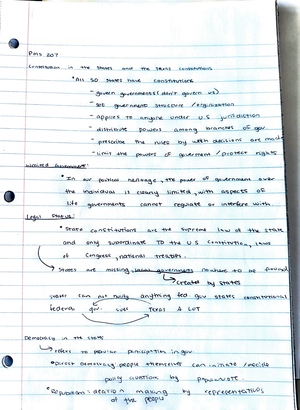 POLS 207
Constitution in the States and the Texas Constitutions
• All 50 states have constitutions
- govern governments (don't govern us)
- set government structure / organization
- applies to anyone under U.S jurisdiction
- distribute powers among branches of gov
- prescribe the rules by which decisions are made
- limit the powers of goverment / protect rights
Limited Government:
• In our political heritage, the power of government over
the individual is clearly limited, with aspects of
life governments cannot regulate or interfere with
Legal Status:
• State constitutions are the supreme law of the state
and only subordinate to the US Constitution, laws
of Congress, national treaties.
States are missing, local governments nowhere to be found
created by states
States can not nullify anything fed gov states constitutional
federal gov. sues Texas & LUT
Democracy in the States
refers to popular participation in gov.
• Direct democracy: people themselves can initiate / decide
policy question by popular vote
• Republican: decision making by representatives
of the people